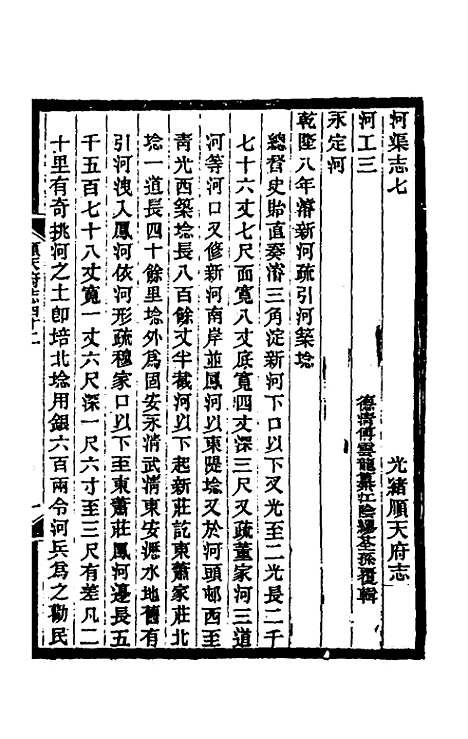 河渠志七　光緒順天府志
河工三　德清傅雲龍纂江陰繆荃孫覆輯
永定河
乾隆八年濬新河疏引河築埝
總督史貽直奏濬三角淀新河下口以下叉光至二光長二千
七十六丈七尺面寬八丈底寬四丈深三尺又疏董家河三道
河等河口又修新河南岸並鳳河以東隄埝又於河頭邨西至
靑光西築埝長八百餘丈半截河以下起新莊訖東蕭家莊北
埝一道長四十餘里埝外爲固安永淸武淸東安瀝水地舊有
引河洩入鳳河依河形疏穆家口以下至東蕭莊鳳河邊長五
千五百七十八丈寬一丈六尺深一尺六寸至三尺有差凡二
十里有奇挑河之土卽培北埝用銀六百兩令河兵爲之勸民
順天府志四十二　一